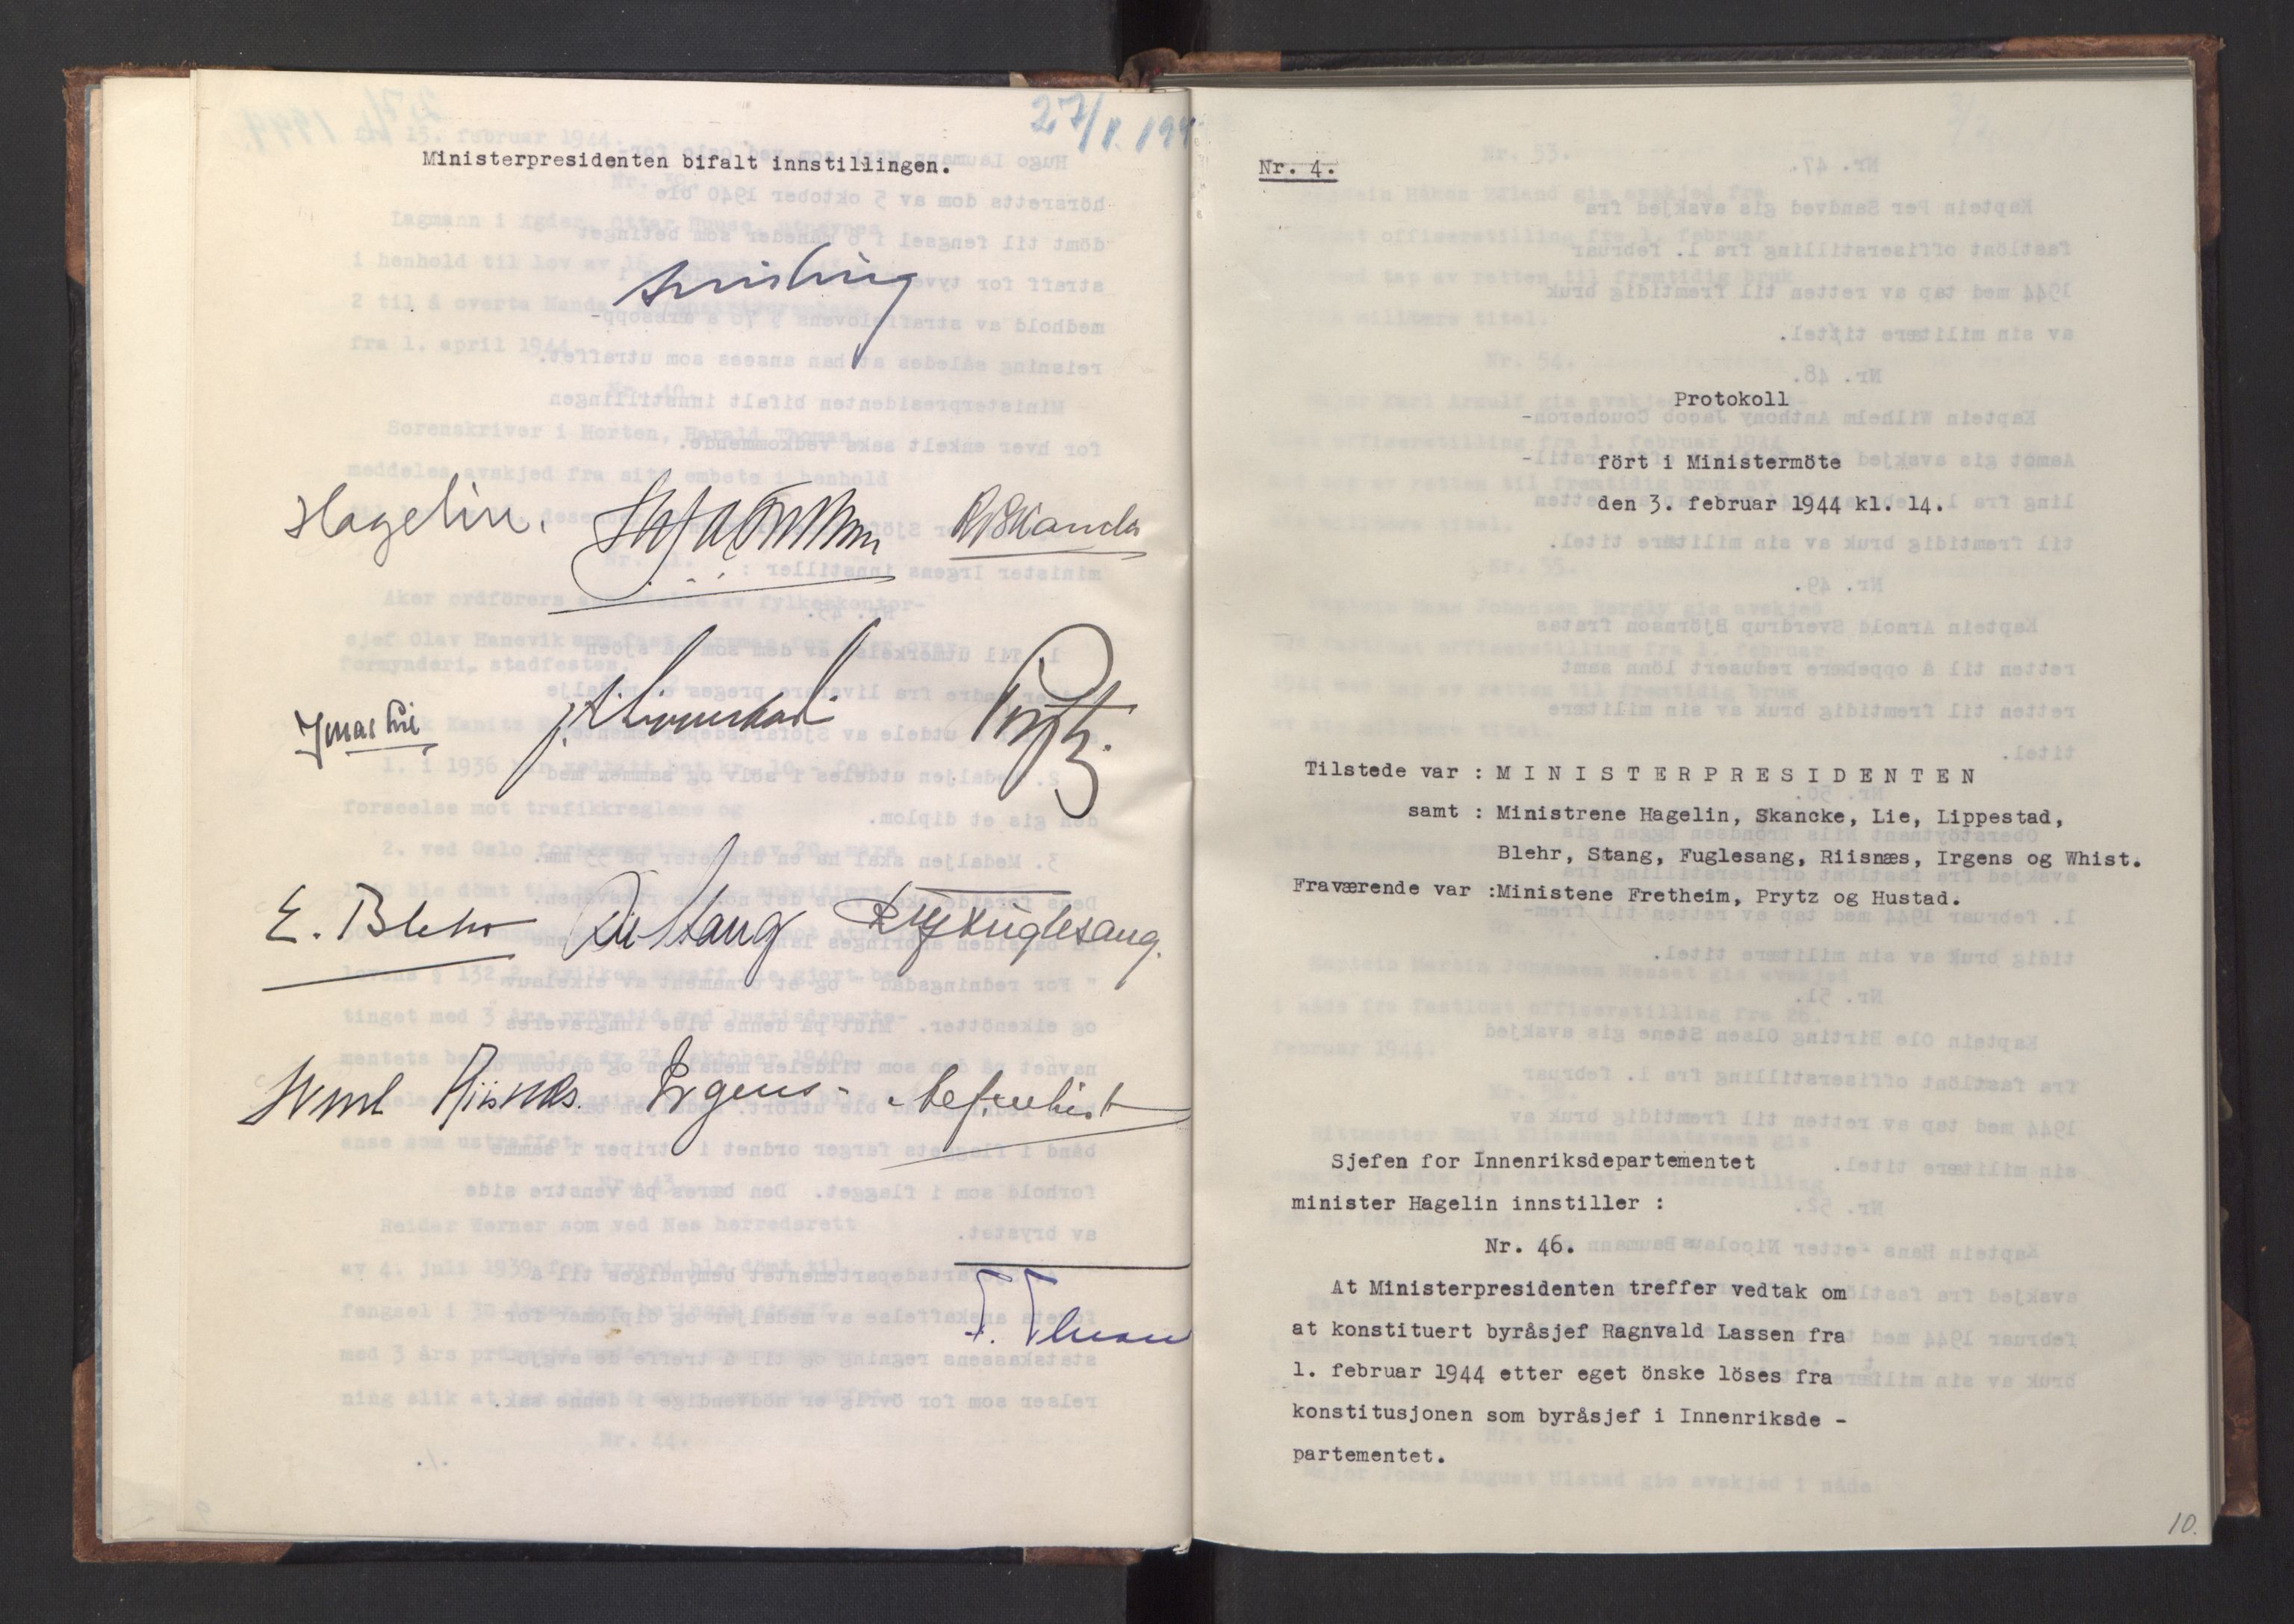 27/1. 194
Ministerpresidenten bifalt innstillingen.
Quisling
Hagelin.
R Skancke
Jonas Lie
J Lippestad
Prytz.
E. Blehr
Stang
Fuglesang.
Sverre Riisnæs.
Irgens
Whist
Nr. 4.
Protokoll
ført i Ministermöte
den 3. februar 1944 kl. 14.
Tilstede var : M I N I S T E R P R E S I D E N T E N
samt : Ministrene Hagelin, Skancke, Lie, Lippestad,
Blehr, Stang, Fuglesang, Riisnæs, Irgens og Whist.
Fraværende var :Ministene Fretheim, Prytz og Hustad.
Sjefen for Innenriksdepartementet
minister Hagelin innstiller :
Nr. 46.
At Ministerpresidenten treffer vedtak om
at konstituert byråsjef Ragnvald Lassen fra
1. februar 1944 etter eget önske löses fra
konstitusjonen som byråsjef i Innenriksde -
partementet.
10.